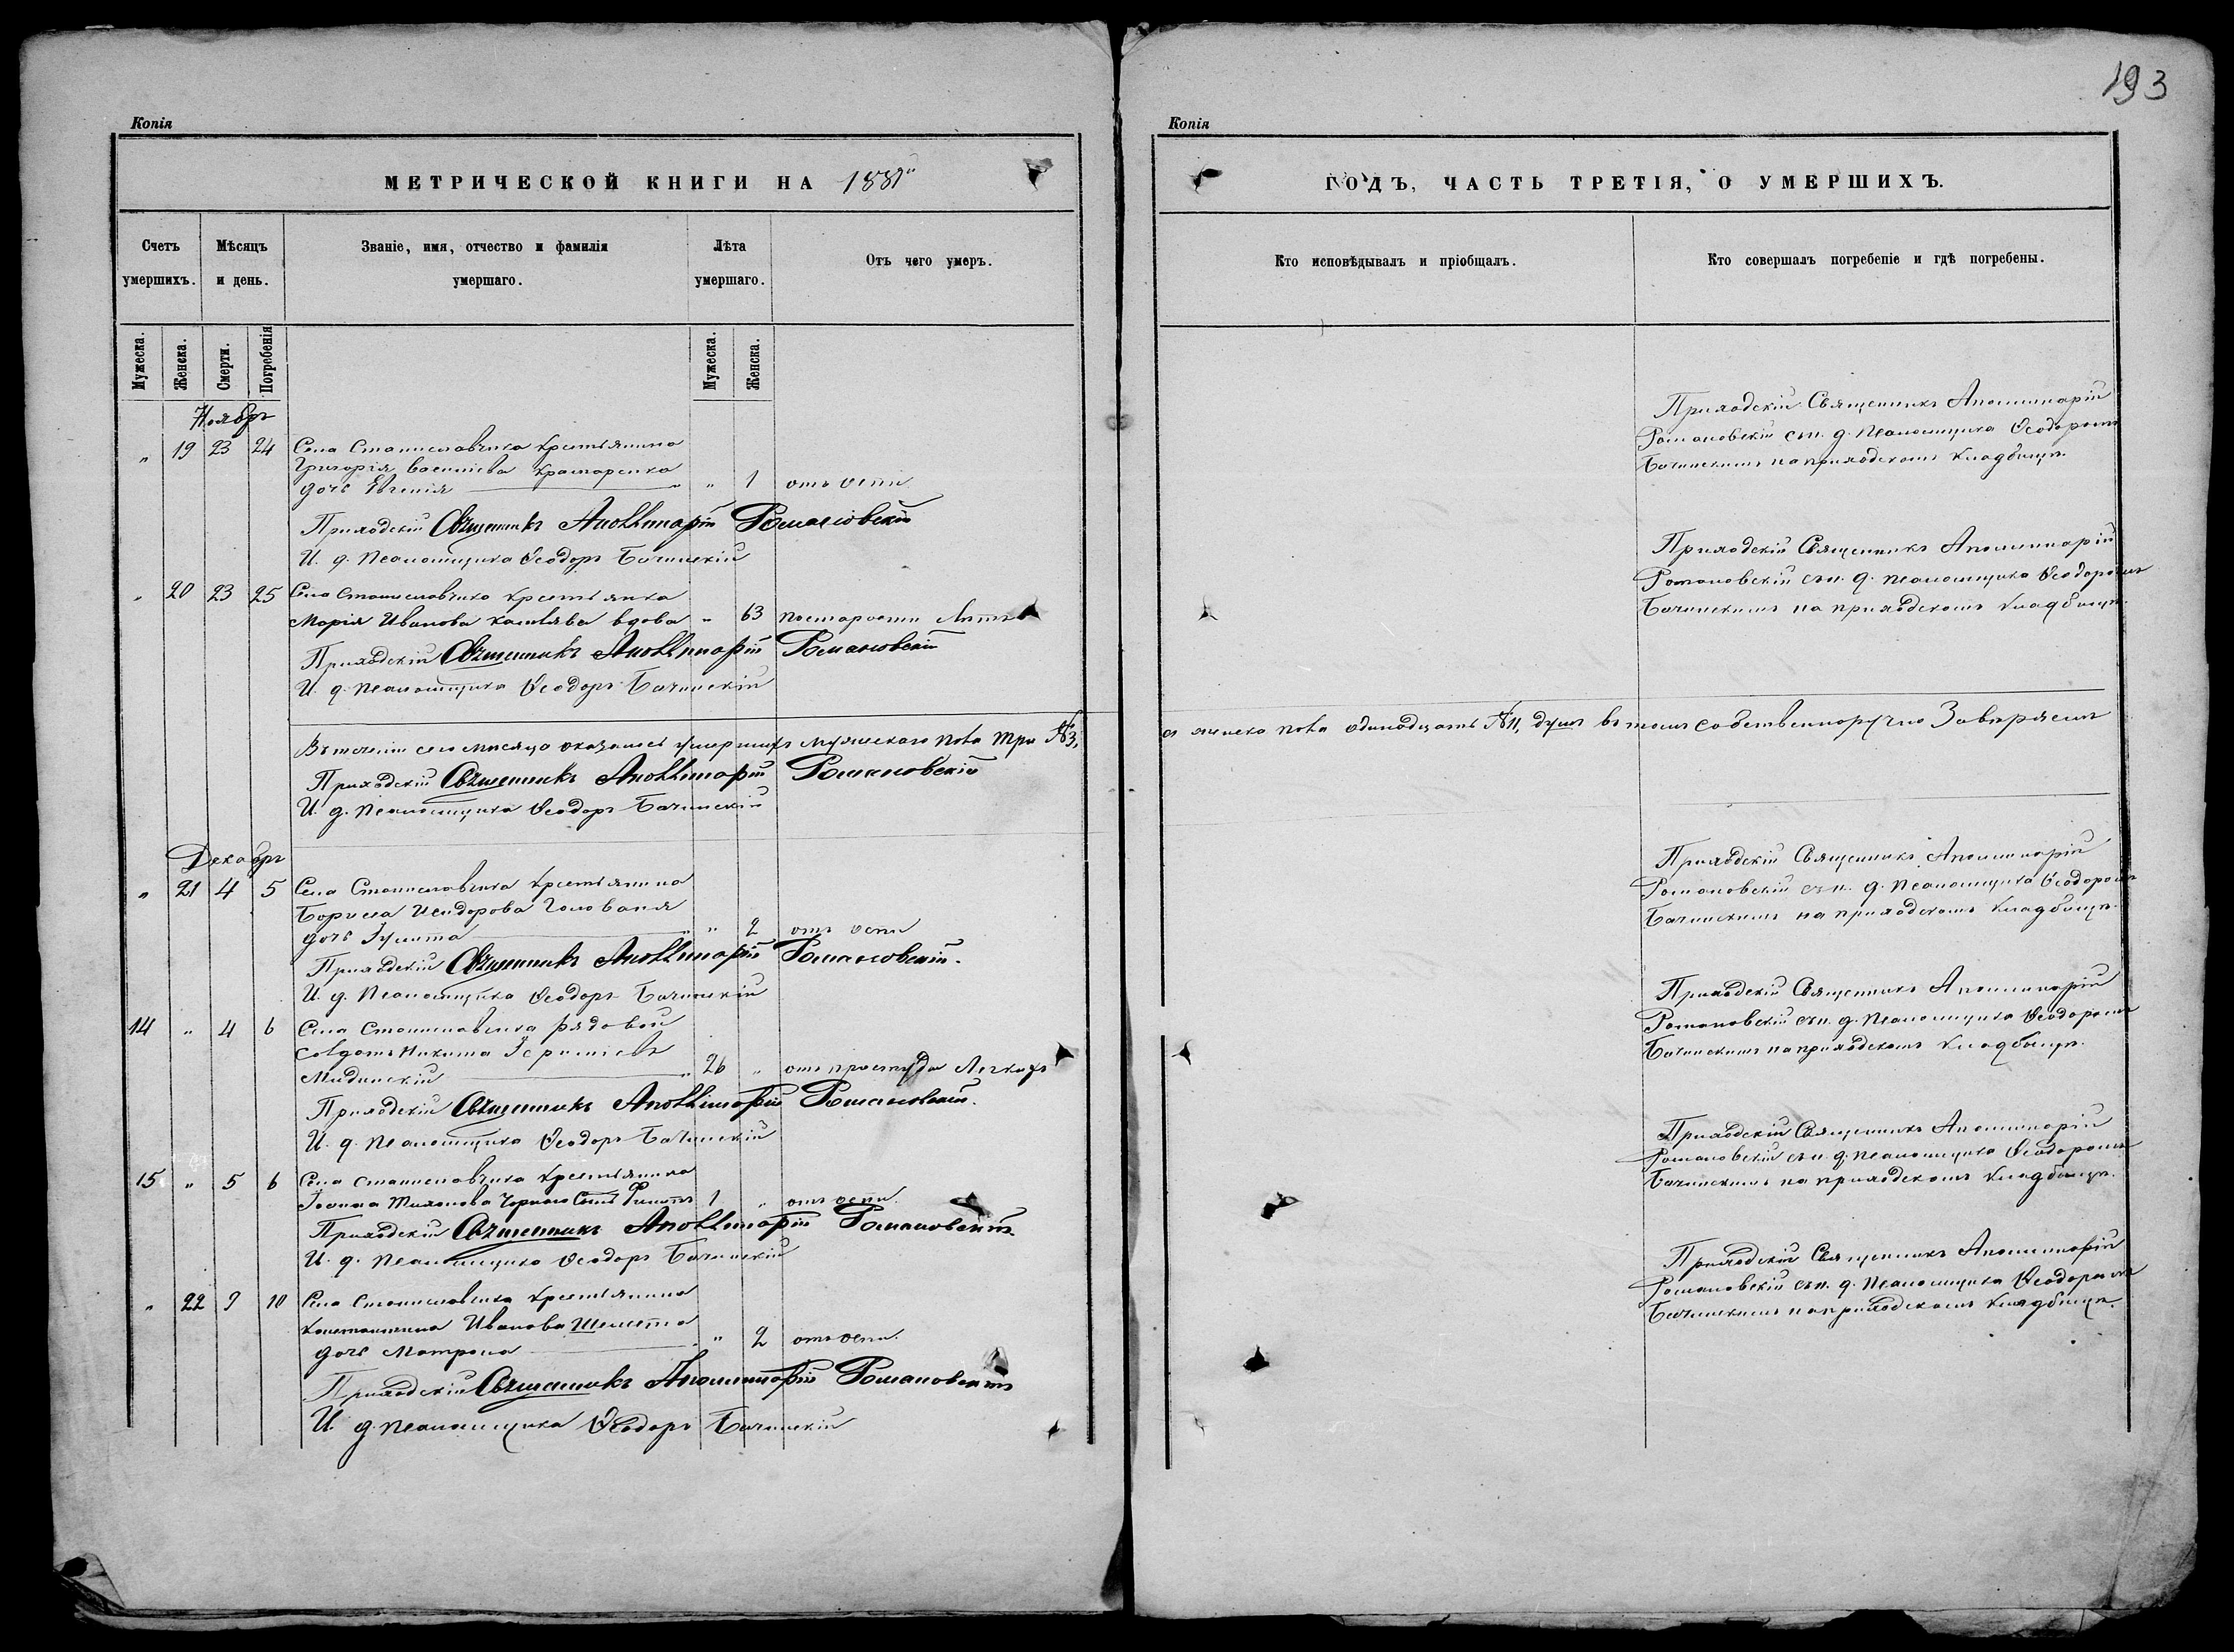 193
Копія
МЕТРИЧЕСКОЙ КНИГИ НА 1881й
Счетъ умершихъ.
Мѣсяцъ и день.
Званіе, имя, отчество и фамилія умершаго.
Лѣта умершаго.
Отъ чего умеръ.
Мужеска.
Женска.
Смерти.
Погребенія
Мужеска.
Женска.
Ноябрь
" 19 23 24 Села Станиславчика крестьянина
Григорія Крамаренка
дочь Евгенія " 1 отъ оспы
Приходскій Священникъ Аполлинарій Романовскій
И. д. Псаломщика Ѳеодоръ Бачинскій
" 20 23 25 Села Станиславчика крестьянка
Марія Иванова вдова " 63 по старости Лѣтъ
Приходскій Священникъ Аполлинарій Романовскій
И. д. Псаломщика Ѳеодоръ Бачинскій
Въ теченіи сего мѣсяца оказалось умершихъ мужескаго пола три №3,
Приходскій Священникъ Аполлинарій Романовскій
И. д. Псаломщика Ѳеодоръ Бачинскій
Декабрь
" 21 4 5 Села Станиславчика крестьянина
Бориса Исидорова Голованя
дочь Іулита " 2 отъ оспы
Приходскій Священникъ Аполлинарій Романовскій.
И. д. Псаломщика Ѳеодоръ Бачинскій
14 " 4 6 Села Станиславчика рядовой
солдатъ Никита
26 " отъ простуды Легкихъ
Приходскій Священникъ Аполлинарій Романовскій.
И. д. Псаломщика Ѳеодоръ Бачинскій
15 " 5 6 Села Станиславчика крестьянина
Іоанна Тихонова Чорнаго Сынъ Филиппъ 1 " отъ оспы.
Приходскій Священникъ Аполлинарій Романовскій.
И. д. Псаломщика Ѳеодоръ Бачинскій
" 22 9 10 Села Станиславчика крестьянина
Константина Иванова Шелепа
дочь Матрона " 2 отъ оспы.
Приходскій Священникъ Аполлинарій Романовскій
И. д. Псаломщика Ѳеодоръ Бачинскій
Копія
ГОДЪ, ЧАСТЬ ТРЕТІЯ, О УМЕРШИХЪ.
Кто исповѣдывалъ и пріобщалъ.
Кто совершалъ погребеніе и гдѣ погребены.
Приходскій Священникъ Аполлинарій
Романовскій съ и. д. Псаломщика Ѳеодоромъ
Бачинскимъ на приходскомъ кладбищѣ.
Приходскій Священникъ Аполлинарій
Романовскій съ и. д. Псаломщика Ѳеодоромъ
Бачинскимъ на приходскомъ кладбищѣ.
а женска пола одинадцать №11, душъ въ томъ собственноручно Завѣряемъ
Приходскій Священникъ Аполлинарій
Романовскій съ и. д. Псаломщика Ѳеодоромъ
Бачинскимъ на приходскомъ кладбищѣ.
Приходскій Священникъ Аполлинарій
Романовскій съ и. д. Псаломщика Ѳеодоромъ
Бачинскимъ на приходскомъ кладбищѣ.
Приходскій Священникъ Аполлинарій
Романовскій съ и. д. Псаломщика Ѳеодоромъ
Бачинскимъ на приходскомъ кладбищѣ.
Приходскій Священникъ Аполлинарій
Романовскій съ и. д. Псаломщика Ѳеодоромъ
Бачинскимъ на приходскомъ кладбищѣ.